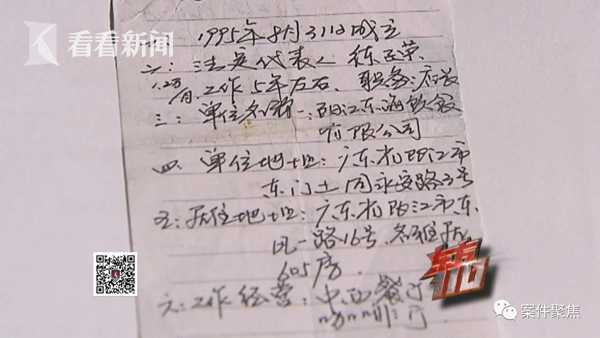 看看新闻
1995年8月31日成立
二:法定代表人 练正荣.
工作5年左右. 职务:
三:单位名称一:阳江东海饮食
有限公司
四、单位地址:广东省阳江市
东门土同永安路3号
五:居住地址:广东省阳江市东
风一路16号
605房.
六:工作经营:中西餐厅
案件聚焦